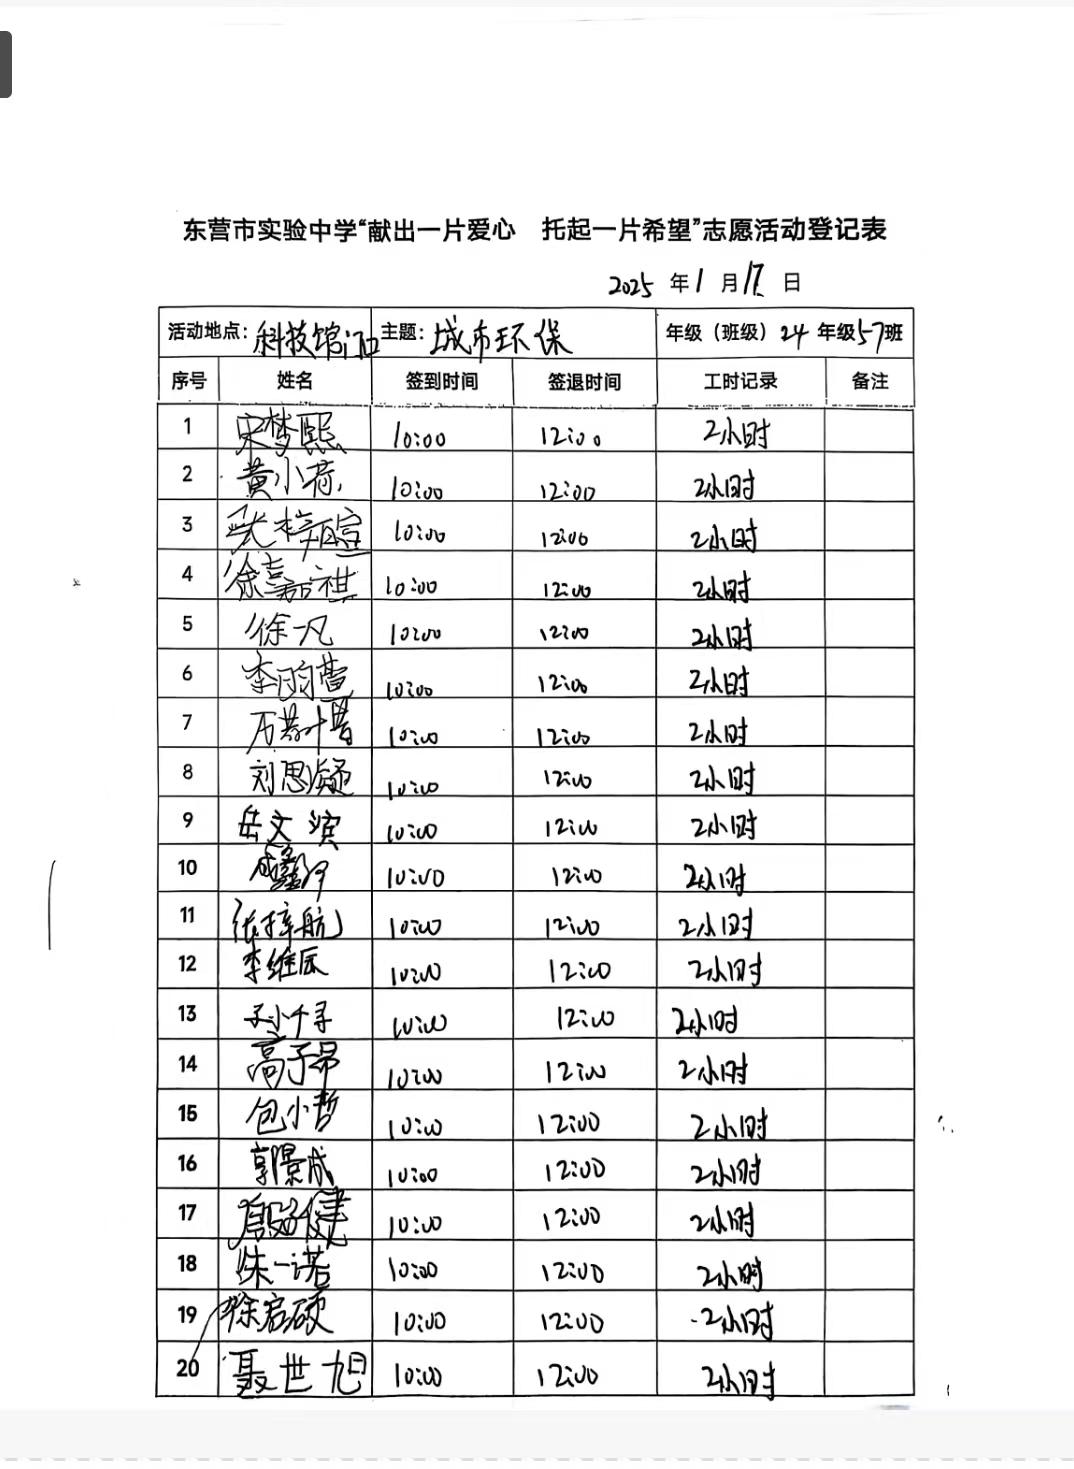 东营市实验中学“献出一片爱心 托起一片希望”志愿活动登记表
2025 年 1 月 17 日
活动地点: 科技馆门口 主题: 城市环保 年级（班级） 24 年级 57 班
序号 姓名 签到时间 签退时间 工时记录 备注
1 宋梦熙 10:00 12:00 2小时
2 黄小荷 10:00 12:00 2小时
3 张梓暄 10:00 12:00 2小时
4 徐嘉祺 10:00 12:00 2小时
5 徐一凡 10:00 12:00 2小时
6 李雨蕾 10:00 12:00 2小时
7 10:00 12:00 2小时
8 刘思凝 10:00 12:00 2小时
9 岳文滨 10:00 12:00 2小时
10 10:00 12:00 2小时
11 张梓航 10:00 12:00 2小时
12 李维辰 10:00 12:00 2小时
13 孙千寻 10:00 12:00 2小时
14 高子昂 10:00 12:00 2小时
15 包小哲 10:00 12:00 2小时
16 郭景成 10:00 12:00 2小时
17 10:00 12:00 2小时
18 朱一诺 10:00 12:00 2小时
19 徐启硕 10:00 12:00 2小时
20 聂世旭 10:00 12:00 2小时